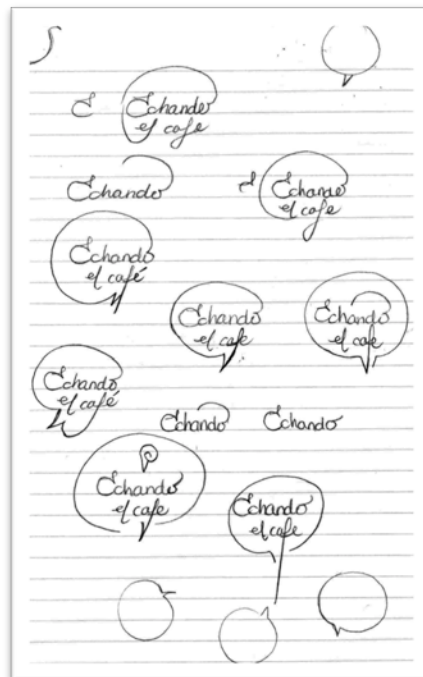 E Echando
el cafe
Echando
E Echando
el cafe
Echando
el café
Echando
el cafe
Echando
el cafe
Echando
el café
Echando
Echando
Echando
el cafe
Echando
el cafe